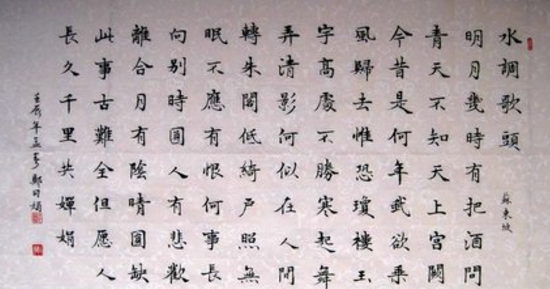 水調歌頭
蘇東坡
明月幾時有把酒問
青天不知天上宮闕
今昔是何年我欲乘
風歸去惟恐瓊樓玉
宇高處不勝寒起舞
弄清影何似在人間
轉朱閣低綺戶照無
眠不應有恨何事長
向别時圓人有悲歡
離合月有陰晴圓缺
此事古難全但愿人
長久千里共嬋娟
壬辰年孟夏鄭娟